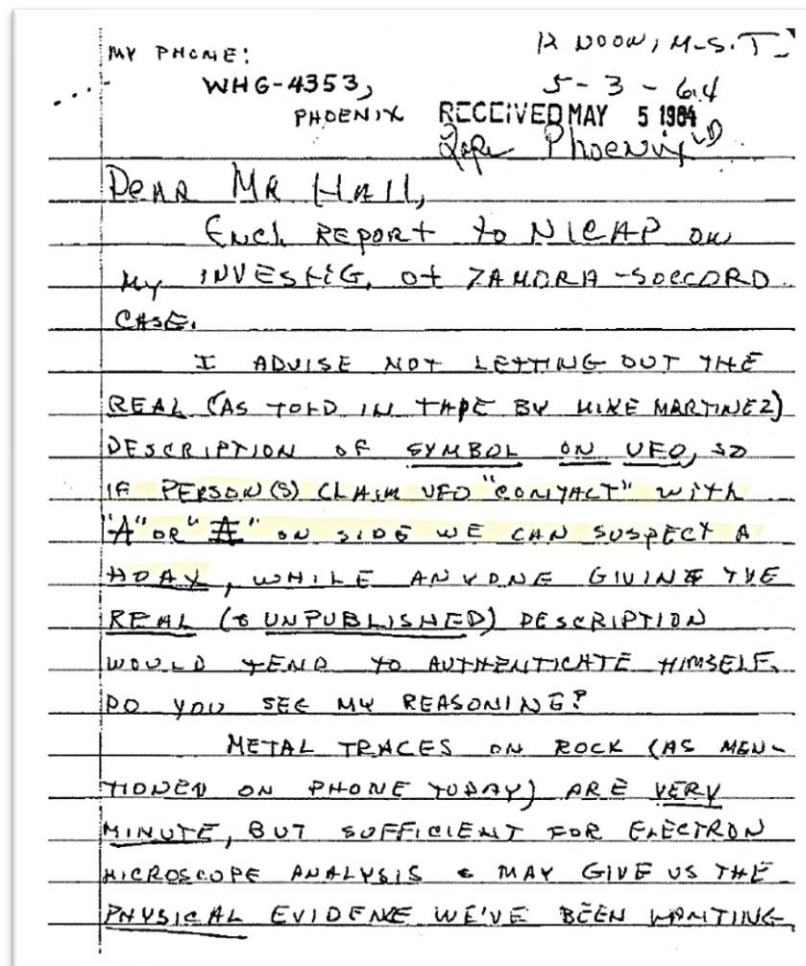 12 NOON, M.S.T.
MY PHONE:
WH6-4353,
5-3-64
PHOENIX RECEIVED MAY 5 1964
Phoenix
DEAR MR HALL,
ENCL REPORT to NICAP ON
MY INVESTIG. Of ZAMORA-SOCCORO
CASE.
I ADVISE NOT LETTING OUT THE
REAL (AS TOLD IN TAPE BY MIKE MARTINEZ)
DESCRIPTION OF SYMBOL ON UFO, SO
IF PERSON(S) CLAIM UFO "CONTACT" WITH
"A" OR "" ON SIDE WE CAN SUSPECT A
HOAX, WHILE ANYONE GIVING THE
REAL (& UNPUBLISHED) DESCRIPTION
WOULD TEND TO AUTHENTICATE HIMSELF.
DO YOU SEE MY REASONING?
METAL TRACES ON ROCK (AS MEN-
TIONED ON PHONE TODAY) ARE VERY
MINUTE, BUT SUFFICIENT FOR ELECTRON
MICROSCOPE ANALYSIS & MAY GIVE US THE
PHYSICAL EVIDENCE WE'VE BEEN WANTING